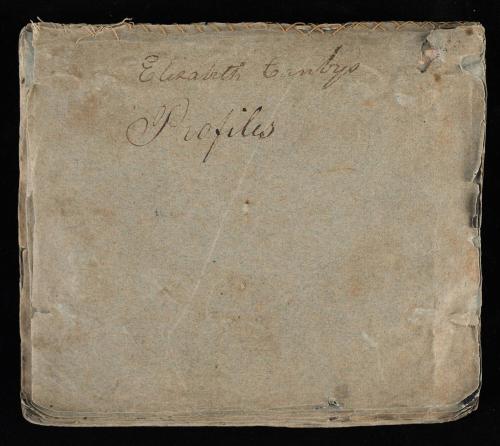 Elizabeth Canbys
Profiles